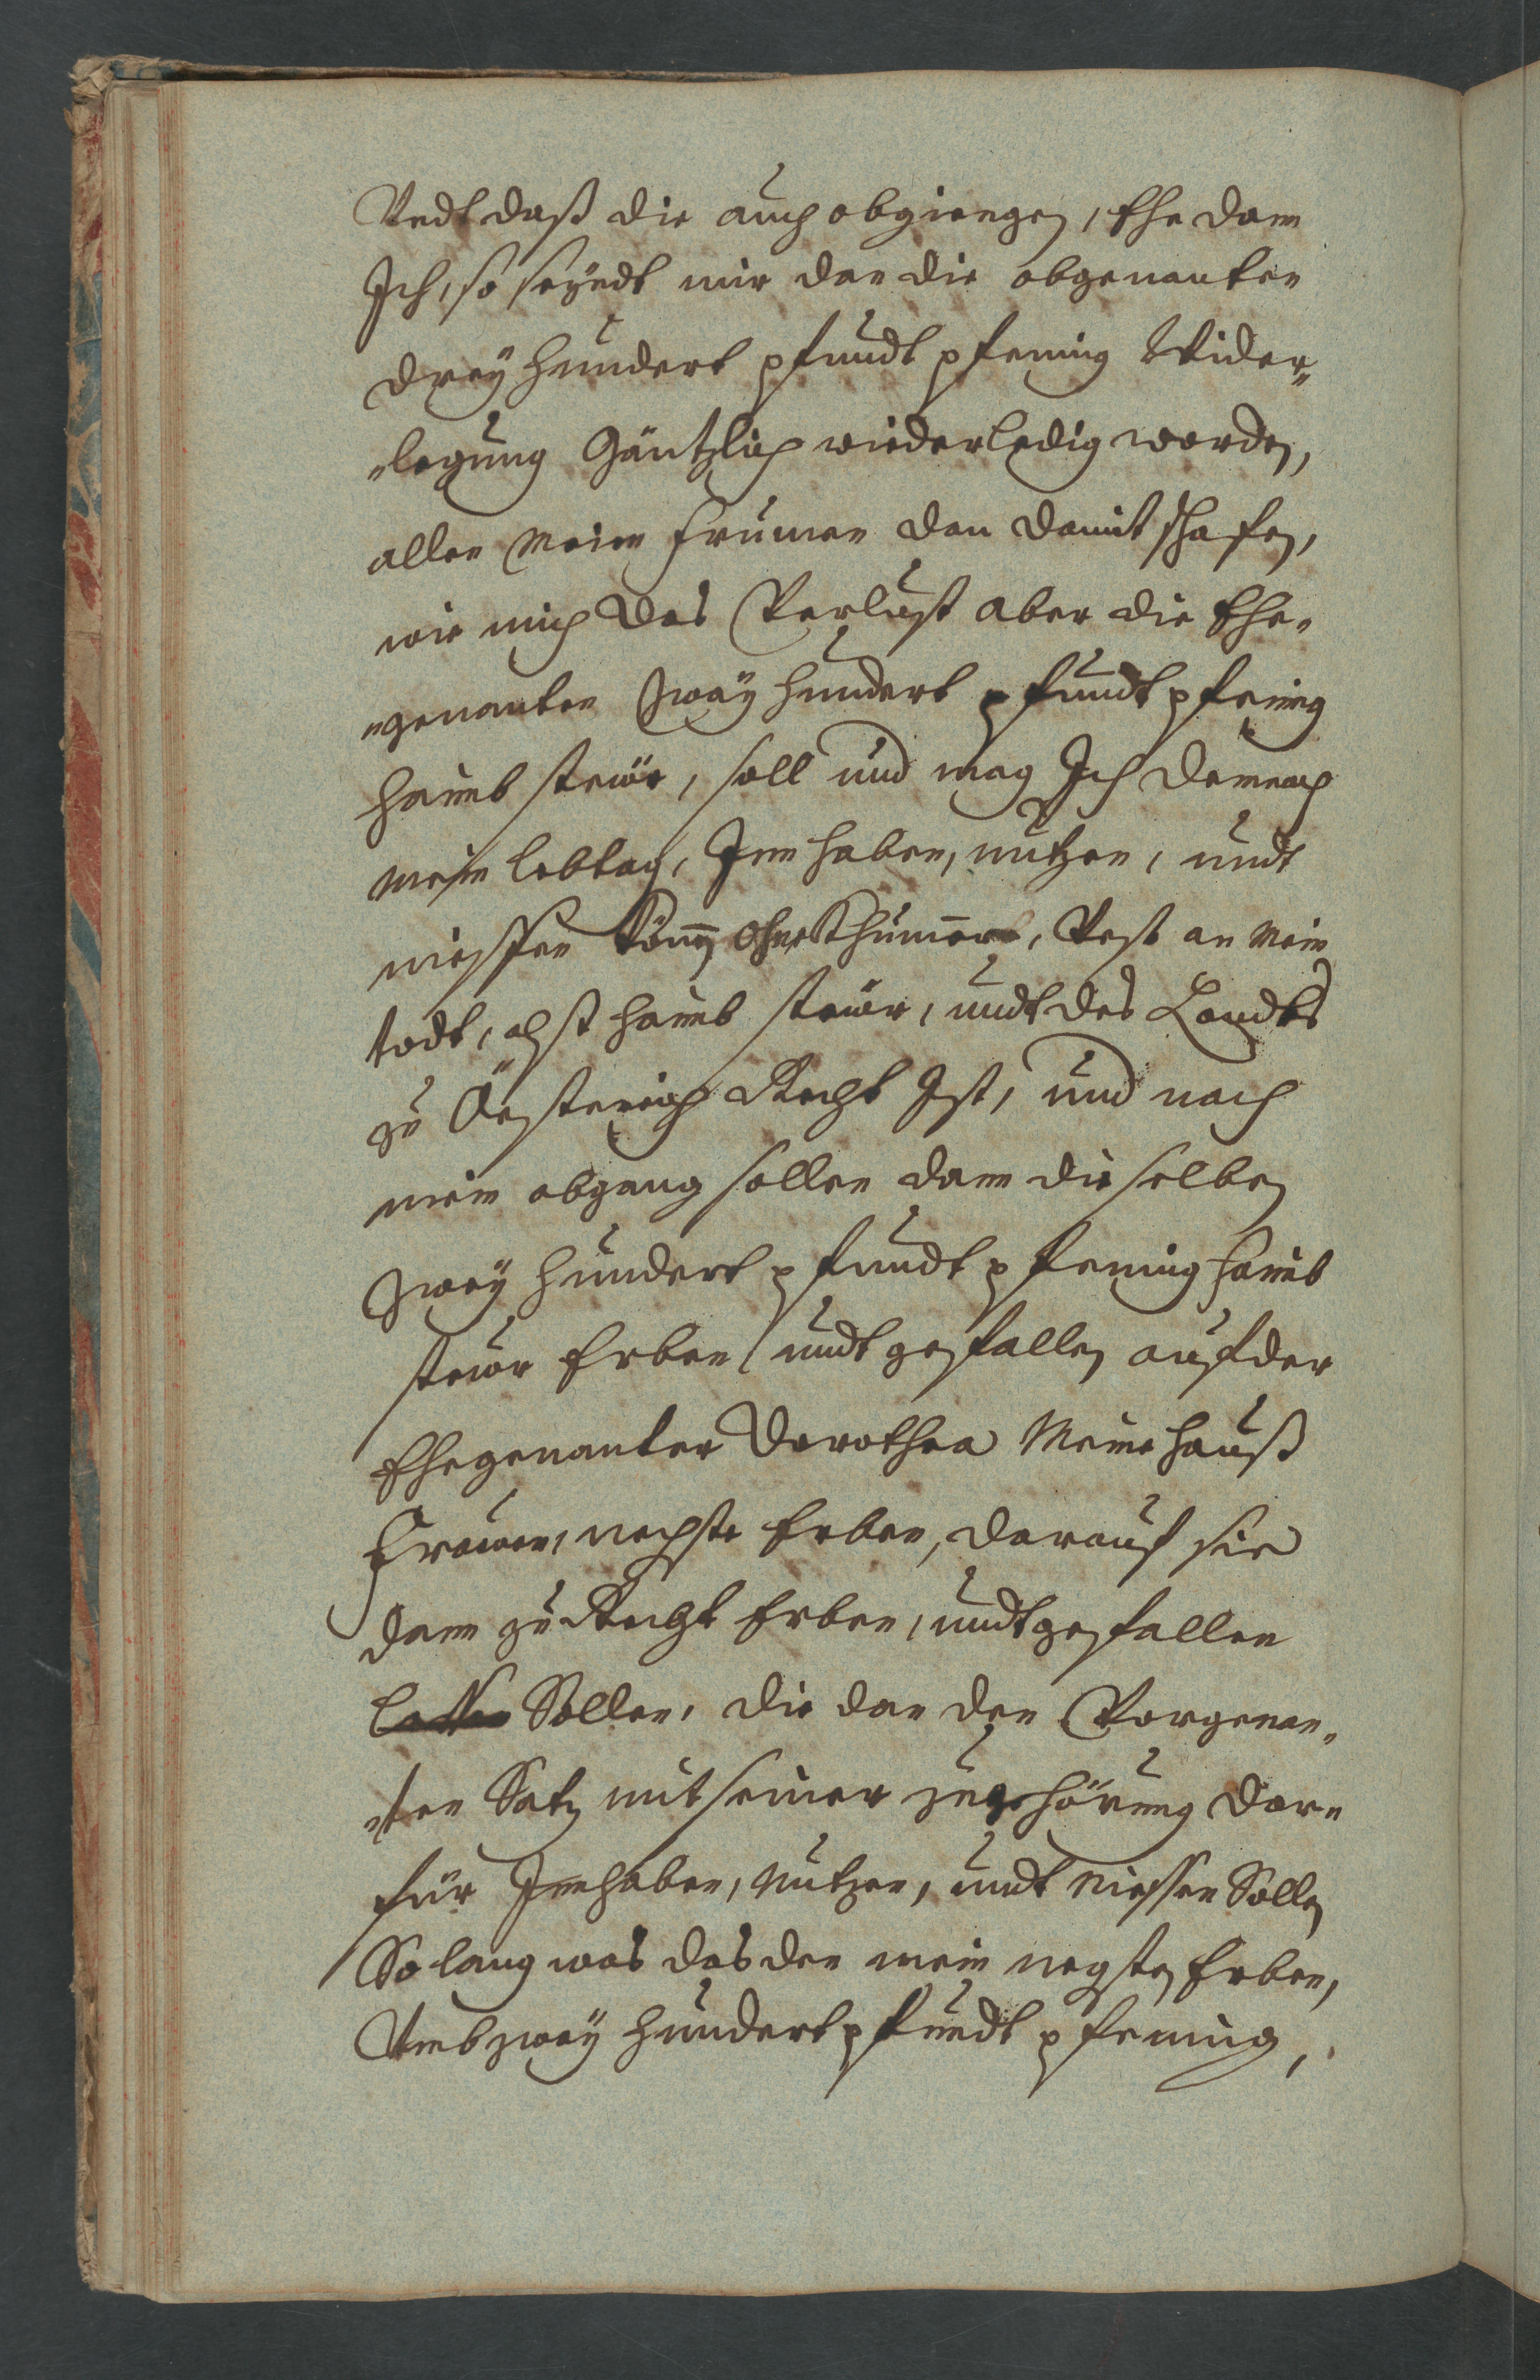 Vndt daß die auch abgiengen, Ehe dann
Ich, so seyndt mir dan die obgenanten
drey hundert pfundt pfening Wider„
„legung Gäntzlich wieder ledig worden,
allen meinen frumen dan damit schafen,
wie mich des Verlust aber die Ehe„
„genanten Zway hundert pfundt pfening
haimb steüer, soll und mag Ich demnach
mein lebtag, Inn haben, nutzen, undt
niessen ohne Khumer, Vest an mein
todt, alß haimb steüer, undt des Landts
zu Össterreich Recht Ist, und nach
mein abgang sollen dann die selben
Zway hundert pfundt pfening haimb
steüer Erben undt gefallen auf der
Ehegenanter Dorothea Meine hauß
Frauen, nechste Erben, darauf sie
dann zu Recht Erben, undt gefallen
Sollen, die dan den Vorgenan„
„ten Satz mit seiner zuge hörung dar„
für Innhaben, Nutzen, undt Niessen Sollen
So lang was das den mein negsten Erben,
Umb zway hundert pfundt pfening,